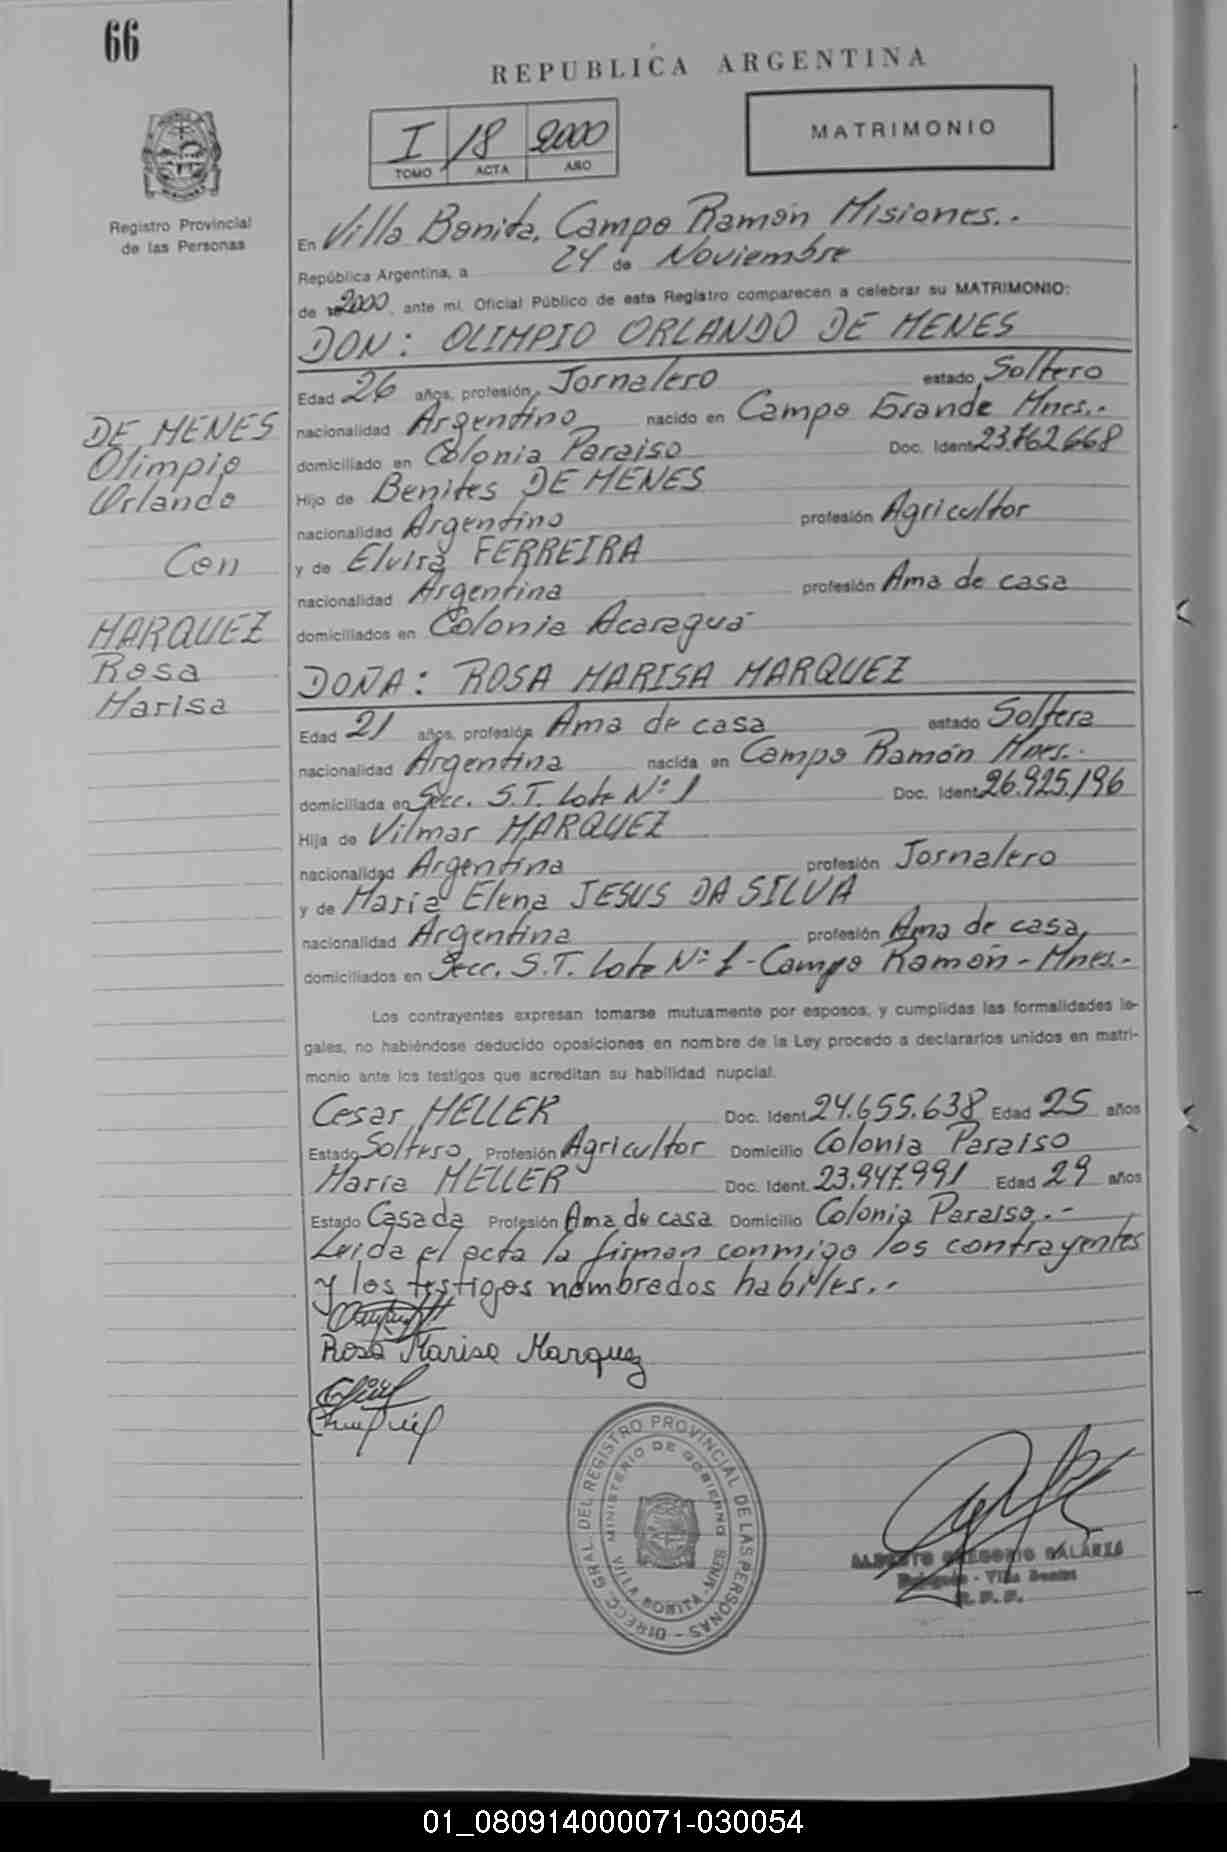 66
REPUBLICA ARGENTINA
I 18 2000
TOMO ACTA AÑO
MATRIMONIO
Registro Provincial
de las Personas
En Villa Bonita, Campo Ramón Misiones.-
República Argentina, a 24 de Noviembre
de 2000, ante mi, Oficial Público de este Registro comparecen a celebrar su MATRIMONIO:
DON: OLIMPIO ORLANDO DE MENES
Edad 26 años, profesión Jornalero estado Soltero
nacionalidad Argentino nacido en Campo Grande Mnes.-
domiciliado en Colonia Paraiso Doc. Ident. 23.762.668
Hijo de Benites DE MENES
nacionalidad Argentino profesión Agricultor
y de Elvira FERREIRA
nacionalidad Argentina profesión Ama de casa
domiciliados en Colonia Acaragua
DE MENES
Olimpio
Orlando
Con
MARQUEZ
Rosa
Marisa
DOÑA: ROSA MARISA MARQUEZ
Edad 21 años, profesión Ama de casa estado Soltera
nacionalidad Argentina nacida en Campo Ramón Mnes.-
domiciliada en Secc. S.T. Lote Nº 1 Doc. Ident. 26.925.196
Hija de Vilmar MARQUEZ
nacionalidad Argentina profesión Jornalero
y de Maria Elena JESUS DA SILVA
nacionalidad Argentina profesión Ama de casa
domiciliados en Secc. S.T. Lote Nº 1 - Campo Ramón - Mnes.-
Los contrayentes expresan tomarse mutuamente por esposos, y cumplidas las formalidades le-
gales, no habiéndose deducido oposiciones en nombre de la Ley procedo a declararlos unidos en matri-
monio ante los testigos que acreditan su habilidad nupcial.
Cesar HELLER Doc. Ident. 24.655.638 Edad 25 años
Estado Soltero Profesión Agricultor Domicilio Colonia Paraiso
Maria HELLER Doc. Ident. 23.947.991 Edad 29 años
Estado Casada Profesión Ama de casa Domicilio Colonia Paraiso.-
Leida el acta la firman conmigo los contrayentes
y los testigos nombrados habiles.-
Rosa Marisa Marquez
DIRECC. GRAL. DEL REGISTRO PROVINCIAL DE LAS PERSONAS -
MINISTERIO DE GOBIERNO
VILLA BONITA - MNES
ALBERTO GREGORIO GALARZA
Delegado - Villa Bonita
R. P. P.
01_080914000071-030054